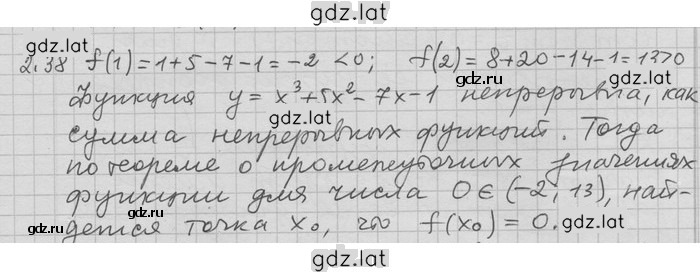 gdz.lat
gdz.lat gdz.lat
2.38 f(1)=1+5-7-1=-2 <0; f(2)=8+20-14-1=13>0
Функция y=x³+5x²-7x-1 непрерывна, как
сумма непрерывных функций. Тогда
по теореме о промежуточных значениях
функции для числа 0∈(-2; 13), най-
дется точка x₀, что f(x₀)=0.
gdz.lat gdz.lat
gdz.lat